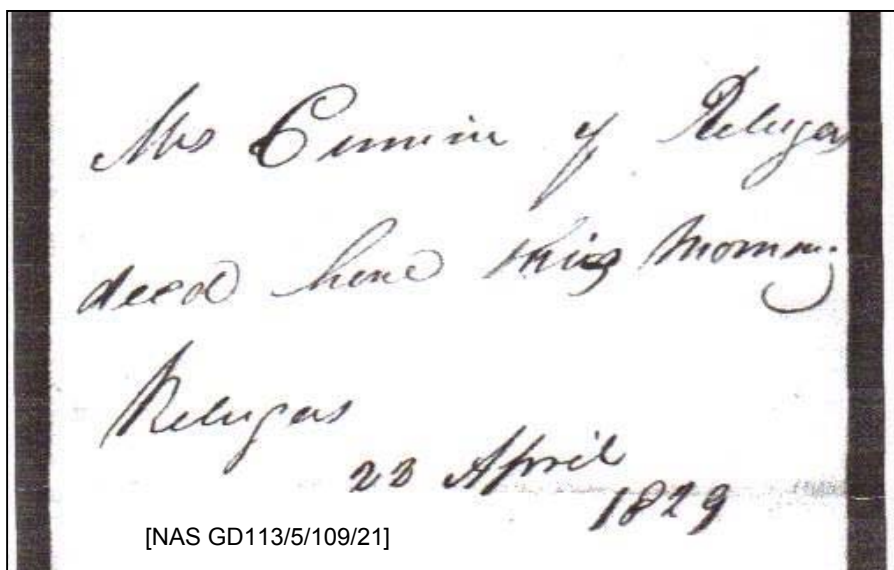 Mrs Cumin of Relugas
died here this Morning
Relugas
23 April
1829
[NAS GD113/5/109/21]